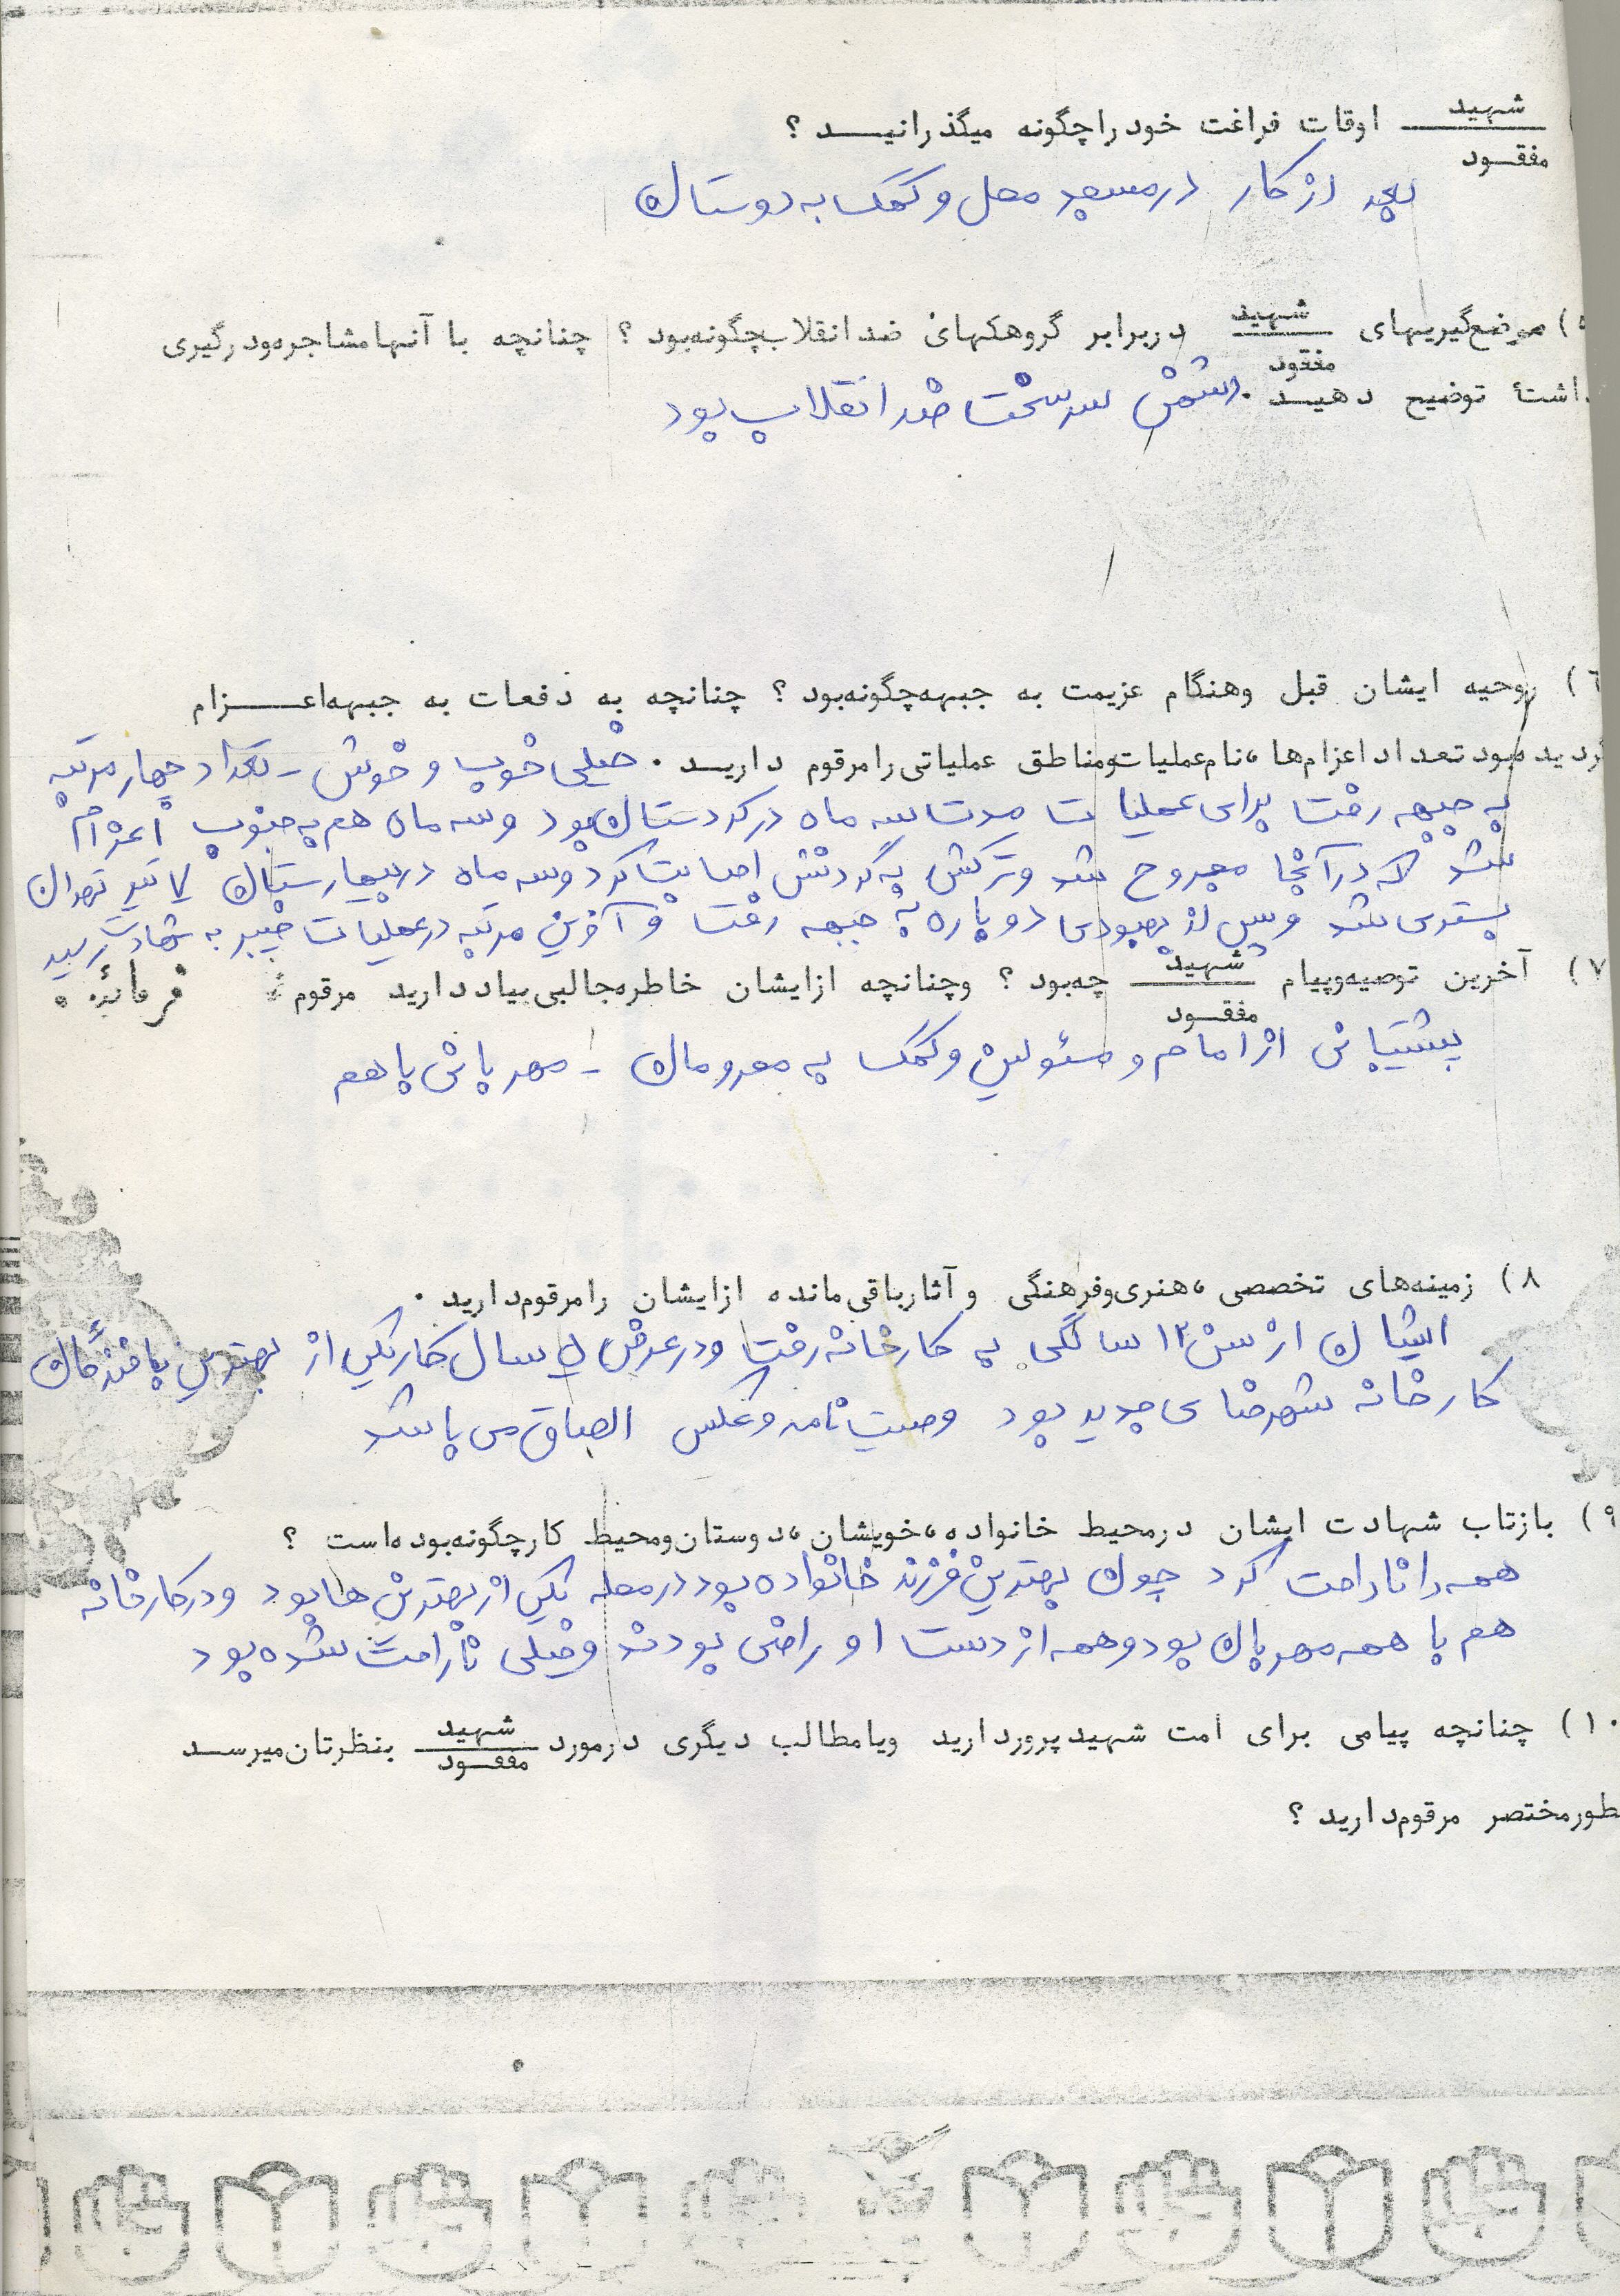 شهید
مفقود اوقات فراغت خود را چگونه میگذرانیــد ؟
بعد از کار در مسجد محل و کمک به دوستان
) موضع‌گیریهای شهید
مفقود دربرابر گروهکهای ضد انقلاب چگونه بود ؟ چنانچه با آنها مشاجره ودرگیری
داشتهٔ توضیح دهیـد . دشمن سرسخت ضد انقلاب بود
٦) روحیه ایشان قبل وهنگام عزیمت به جبهه چگونه بود ؟ چنانچه به دفعات به جبهه اعـــزام
گردیده بود تعداد اعزام‌ها ، نام عملیات و مناطق عملیاتی را مرقوم داریـد . خیلی خوب و خوش - تعداد چهار مرتبه
به جبهه رفت برای عملیات مدت سه ماه در کردستان بود و سه ماه هم به جنوب اعزام
شد که در آنجا مجروح شد و ترکش به گردنش اصابت کرد و سه ماه در بیمارستان تهران
بستری شد و پس از بهبودی دوباره به جبهه رفت و آخرین مرتبه در عملیات خیبر به شهادت رسید
۷) آخرین توصیه وپیام شهید
مفقود چه بود ؟ وچنانچه ازایشان خاطره جالبی بیاد دارید مرقوم فرمائید .
پشتیبانی از امام و مسئولین و کمک به محرومان - مهربانی با هم
۸) زمینه‌های تخصصی ، هنری و فرهنگی و آثار باقی مانده از ایشان را مرقوم دارید .
ایشان از سن ۱۲ سالگی به کارخانه رفت و در عرض ۵ سال کار یکی از بهترین بافندگان
کارخانه شهرضای جدید بود وصیت نامه و عکس الصاق می باشد
۹) بازتاب شهادت ایشان درمحیط خانواده ، خویشان ، دوستان ومحیط کار چگونه بوده است ؟
همه را ناراحت کرد چون بهترین فرزند خانواده بود در محله یکی از بهترین ها بود و در کارخانه
هم با همه مهربان بود و همه از دست او راضی بودند و خیلی ناراحت شده بود
۱۰) چنانچه پیامی برای امت شهید پرور دارید ویا مطالب دیگری درمورد شهید
مفقود بنظرتان میرســد
بطور مختصر مرقوم دارید ؟